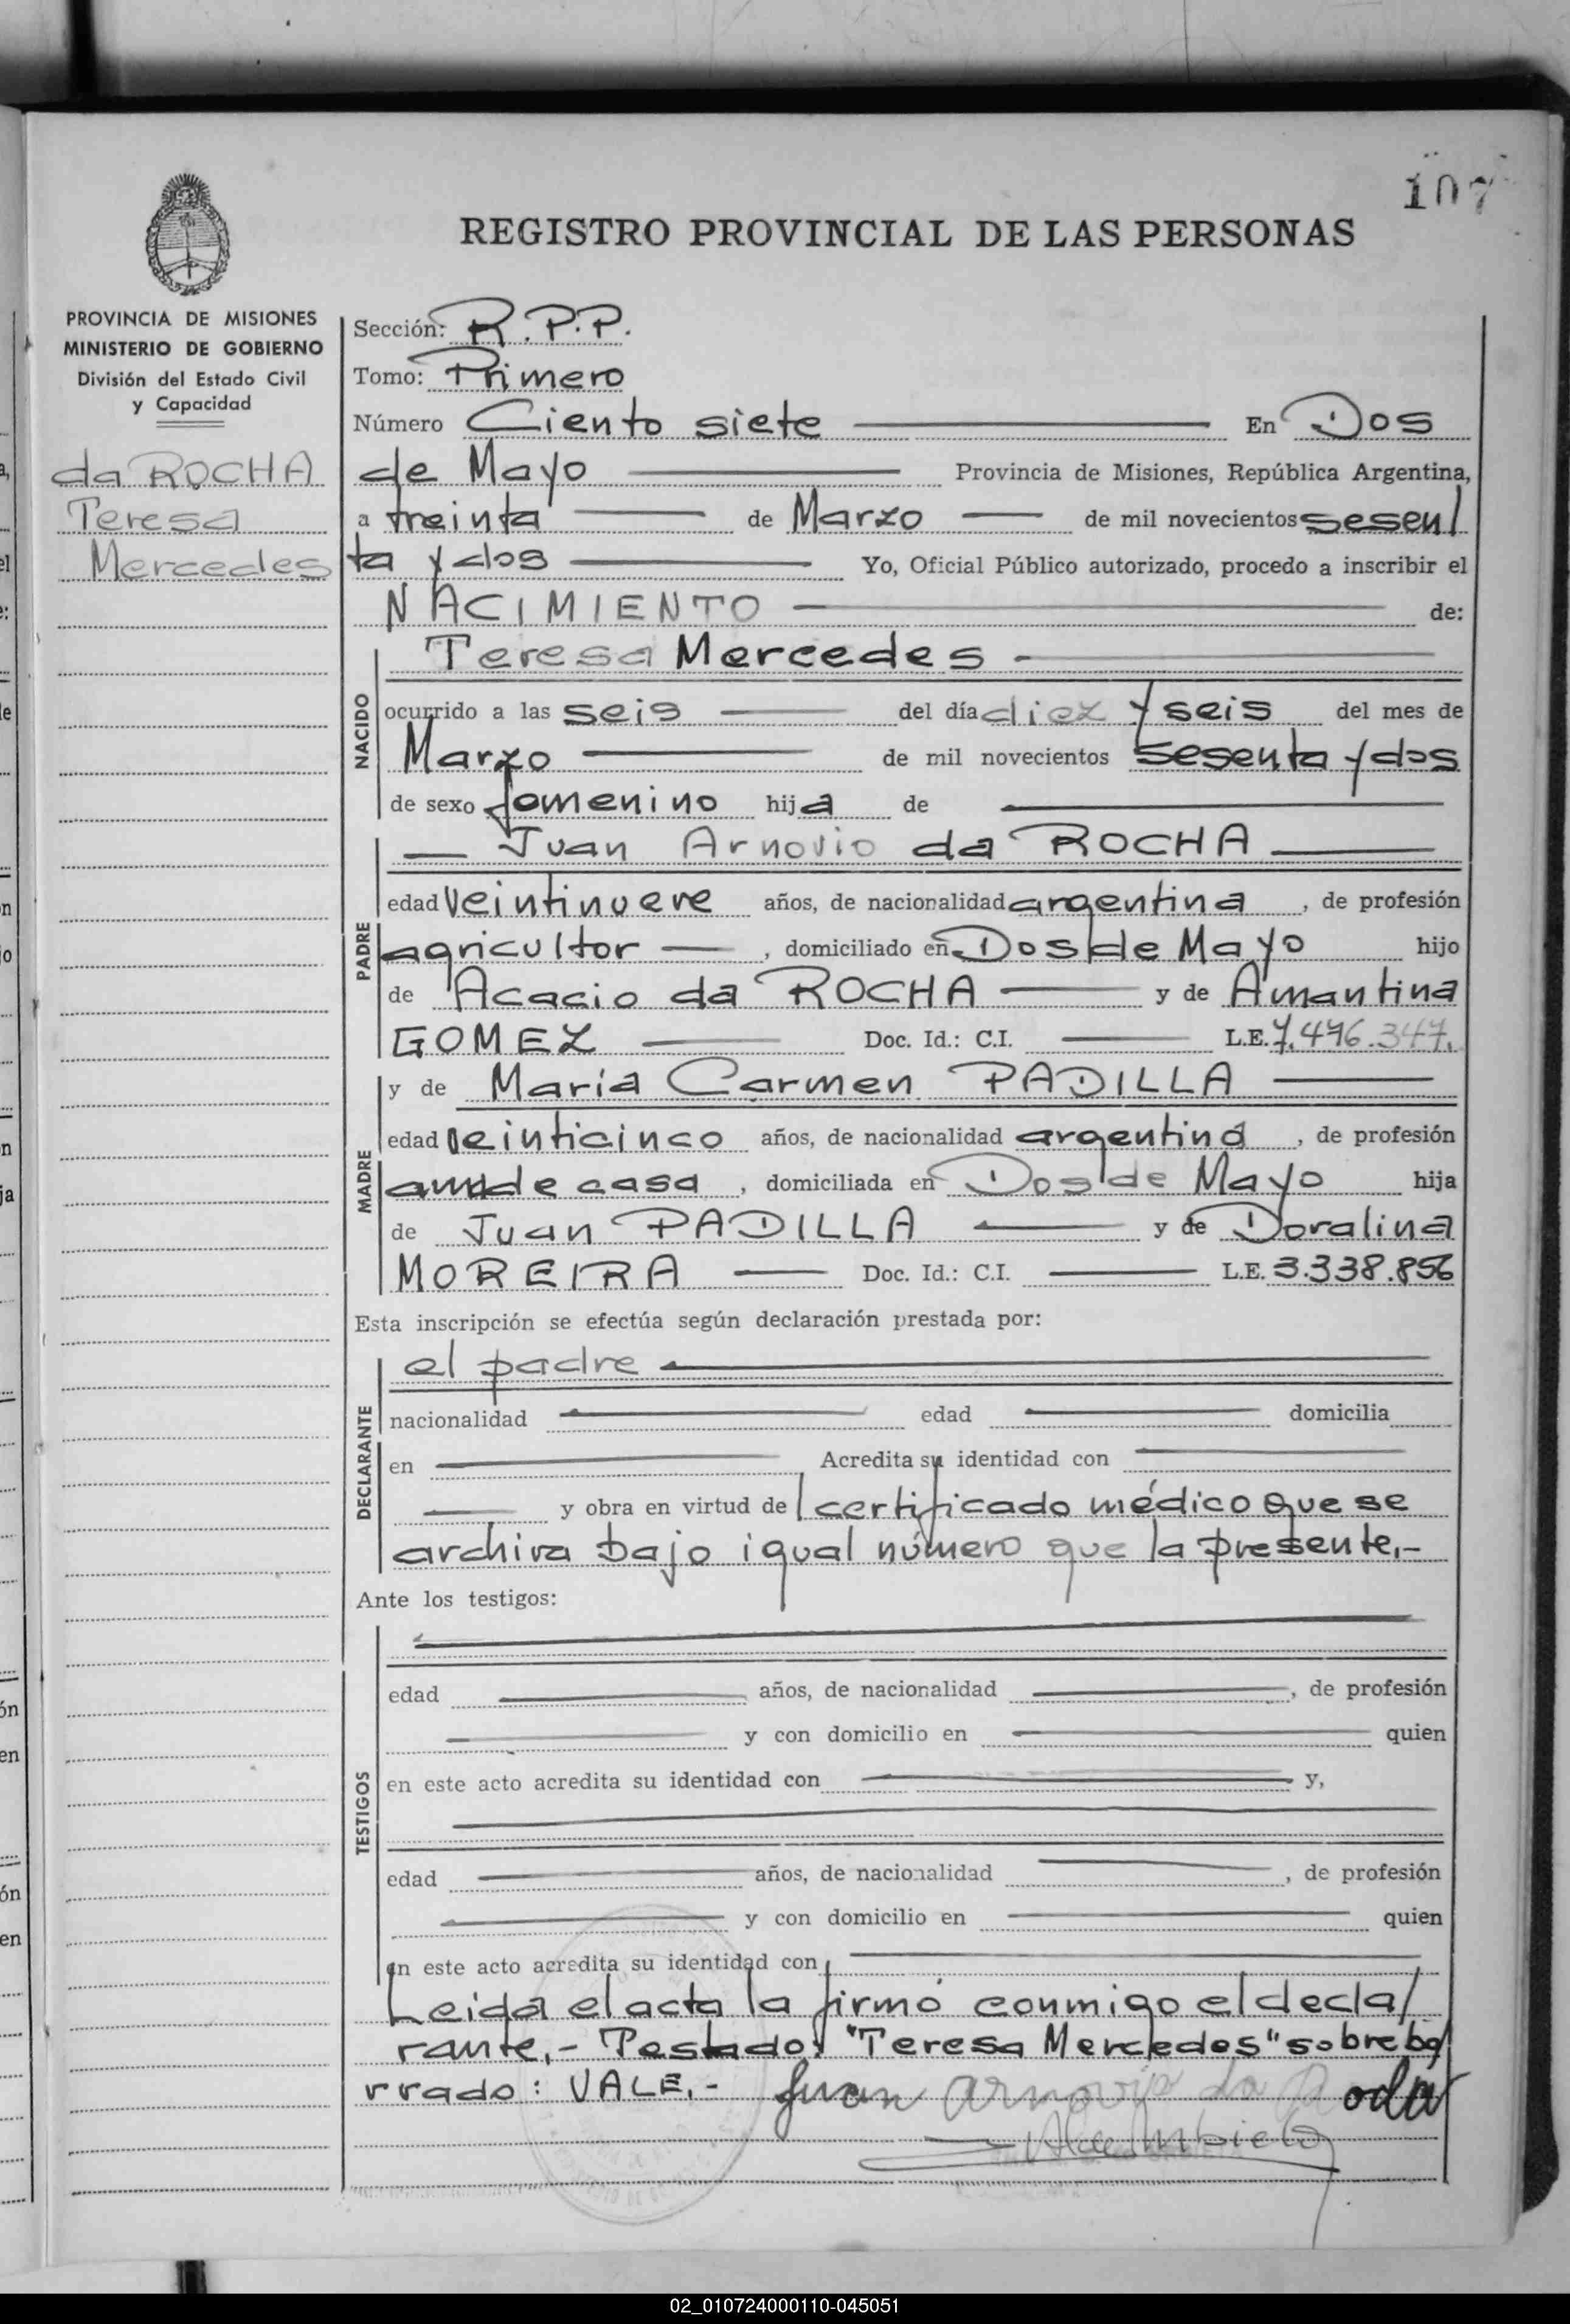 107
REGISTRO PROVINCIAL DE LAS PERSONAS
PROVINCIA DE MISIONES
MINISTERIO DE GOBIERNO
División del Estado Civil
y Capacidad
da ROCHA
Teresa
Mercedes
Sección: R.P.P.
Tomo: Primero
Número Ciento siete En Dos
de Mayo Provincia de Misiones, República Argentina,
a treinta de Marzo de mil novecientos sesen/
ta y dos Yo, Oficial Público autorizado, procedo a inscribir el
NACIMIENTO de:
Teresa Mercedes
NACIDO
ocurrido a las seis del día diez y seis del mes de
Marzo de mil novecientos sesenta y dos
de sexo femenino hija de
Juan Arnovio da ROCHA
PADRE
edad veintinueve años, de nacionalidad argentina, de profesión
agricultor, domiciliado en Dos de Mayo hijo
de Acacio da ROCHA y de Amantina
GOMEZ Doc. Id.: C.I. L.E. 7.476.347.
y de María Carmen PADILLA
MADRE
edad veinticinco años, de nacionalidad argentina, de profesión
ama de casa, domiciliada en Dos de Mayo hija
de Juan PADILLA y de Doralina
MOREIRA Doc. Id.: C.I. L.E. 3.338.856
Esta inscripción se efectúa según declaración prestada por:
el padre
DECLARANTE
nacionalidad edad domicilia
en Acredita su identidad con
y obra en virtud de certificado médico que se
archiva bajo igual número que la presente.-
Ante los testigos:
TESTIGOS
edad años, de nacionalidad , de profesión
y con domicilio en quien
en este acto acredita su identidad con y,
edad años, de nacionalidad , de profesión
y con domicilio en quien
en este acto acredita su identidad con
Leida el acta la firmó conmigo el decla/
rante.- Testado: "Teresa Mercedes" sobre bo/
rrado: VALE.- Juan Arnovio da
02_010724000110-045051